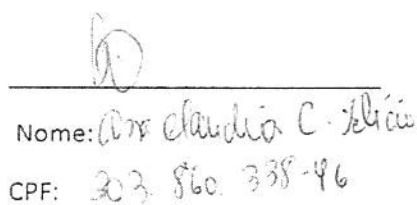 Nome: Ana Claudia C. Felício
CPF: 303.860.338-46